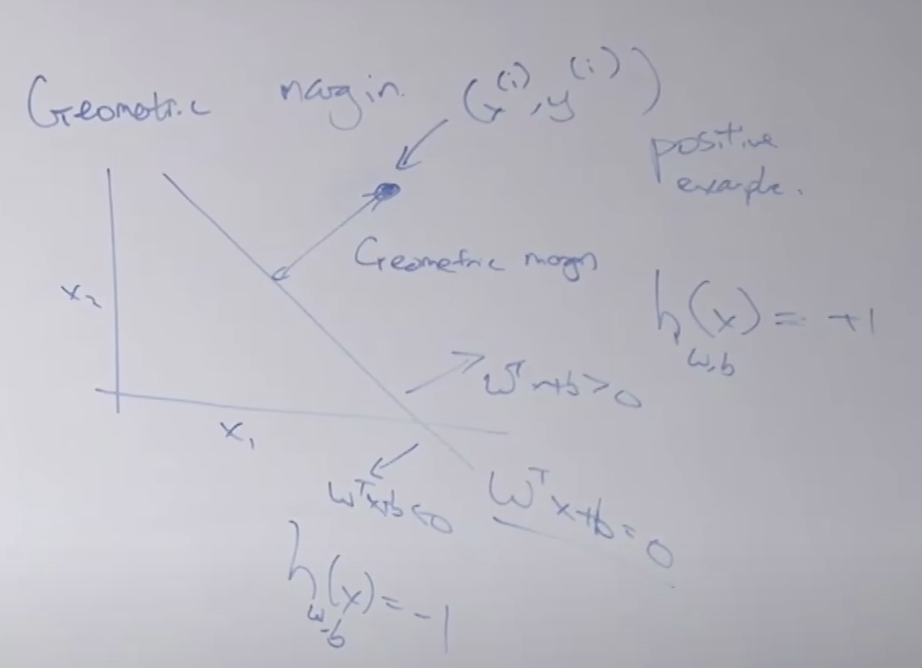 Geometric margin. (x^(i), y^(i))
positive
example.
Geometric margin
x₂
h_{w,b}(x) = +1
wᵀx+b>0
x₁
wᵀx+b<0
wᵀx+b=0
h_{w,b}(x) = -1